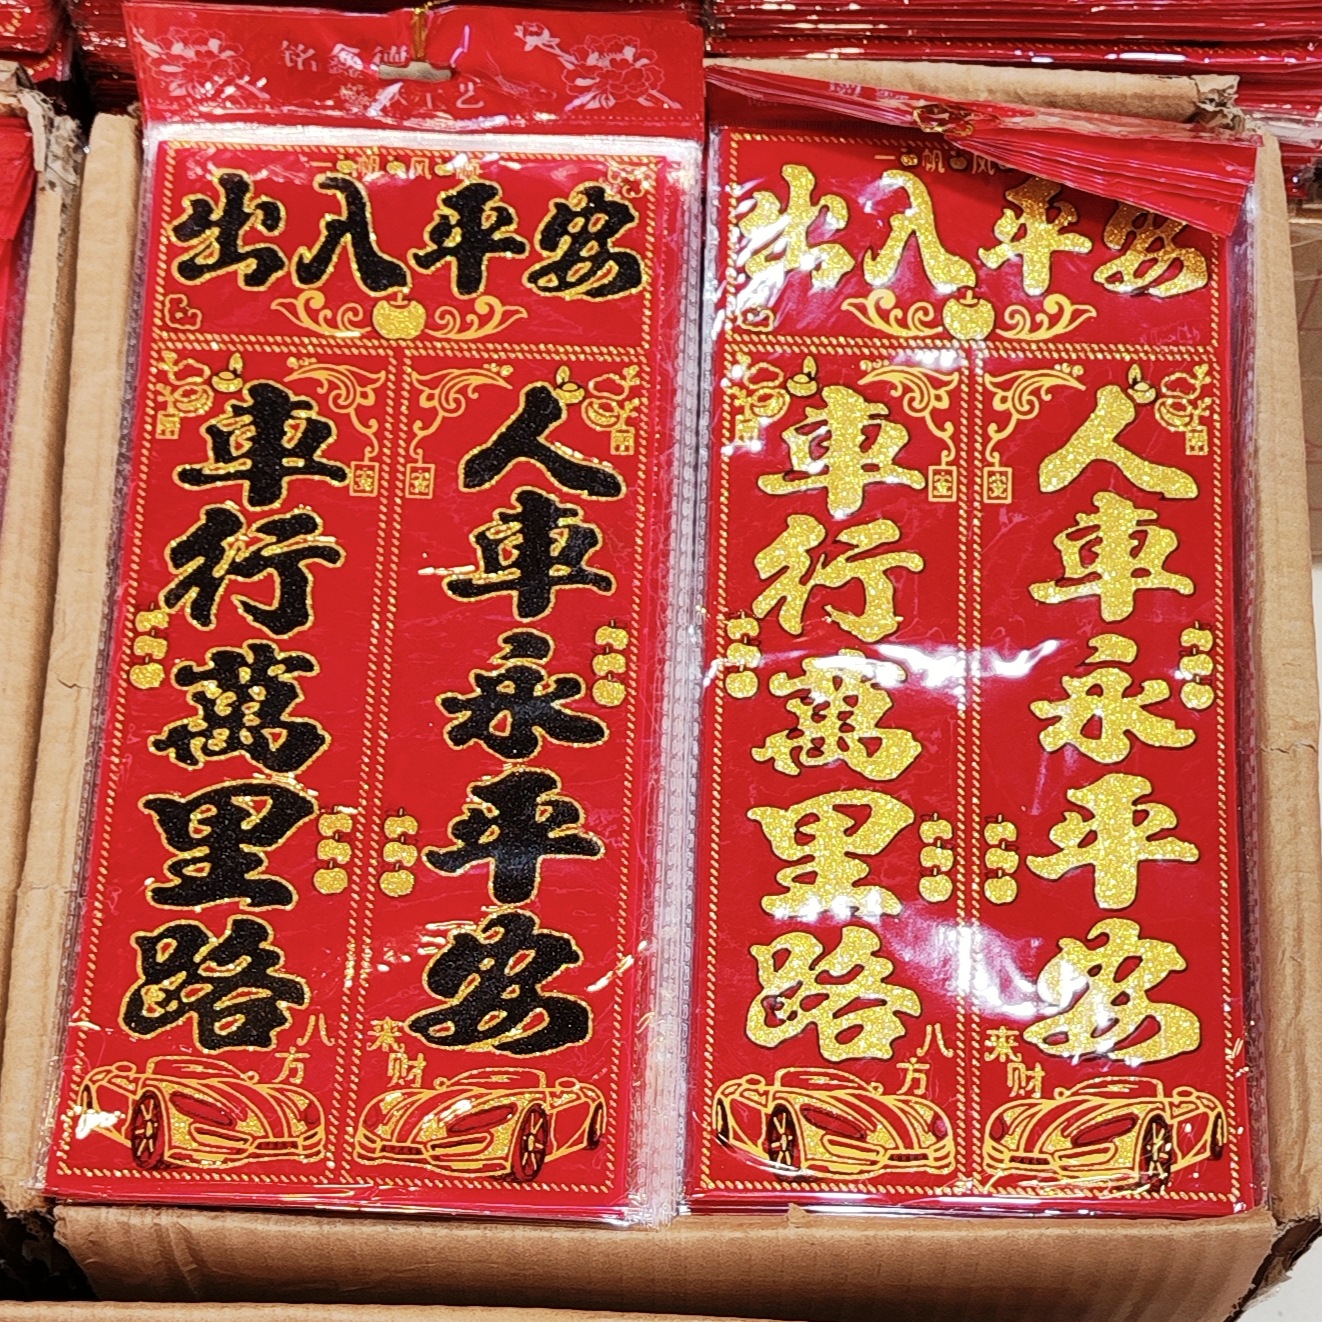 铭鑫德
工艺
一帆风顺
出入平安
車行萬里路
人車永平安
八方
来财
一帆风
出入平安
車行萬里路
人車永平安
八方
来财